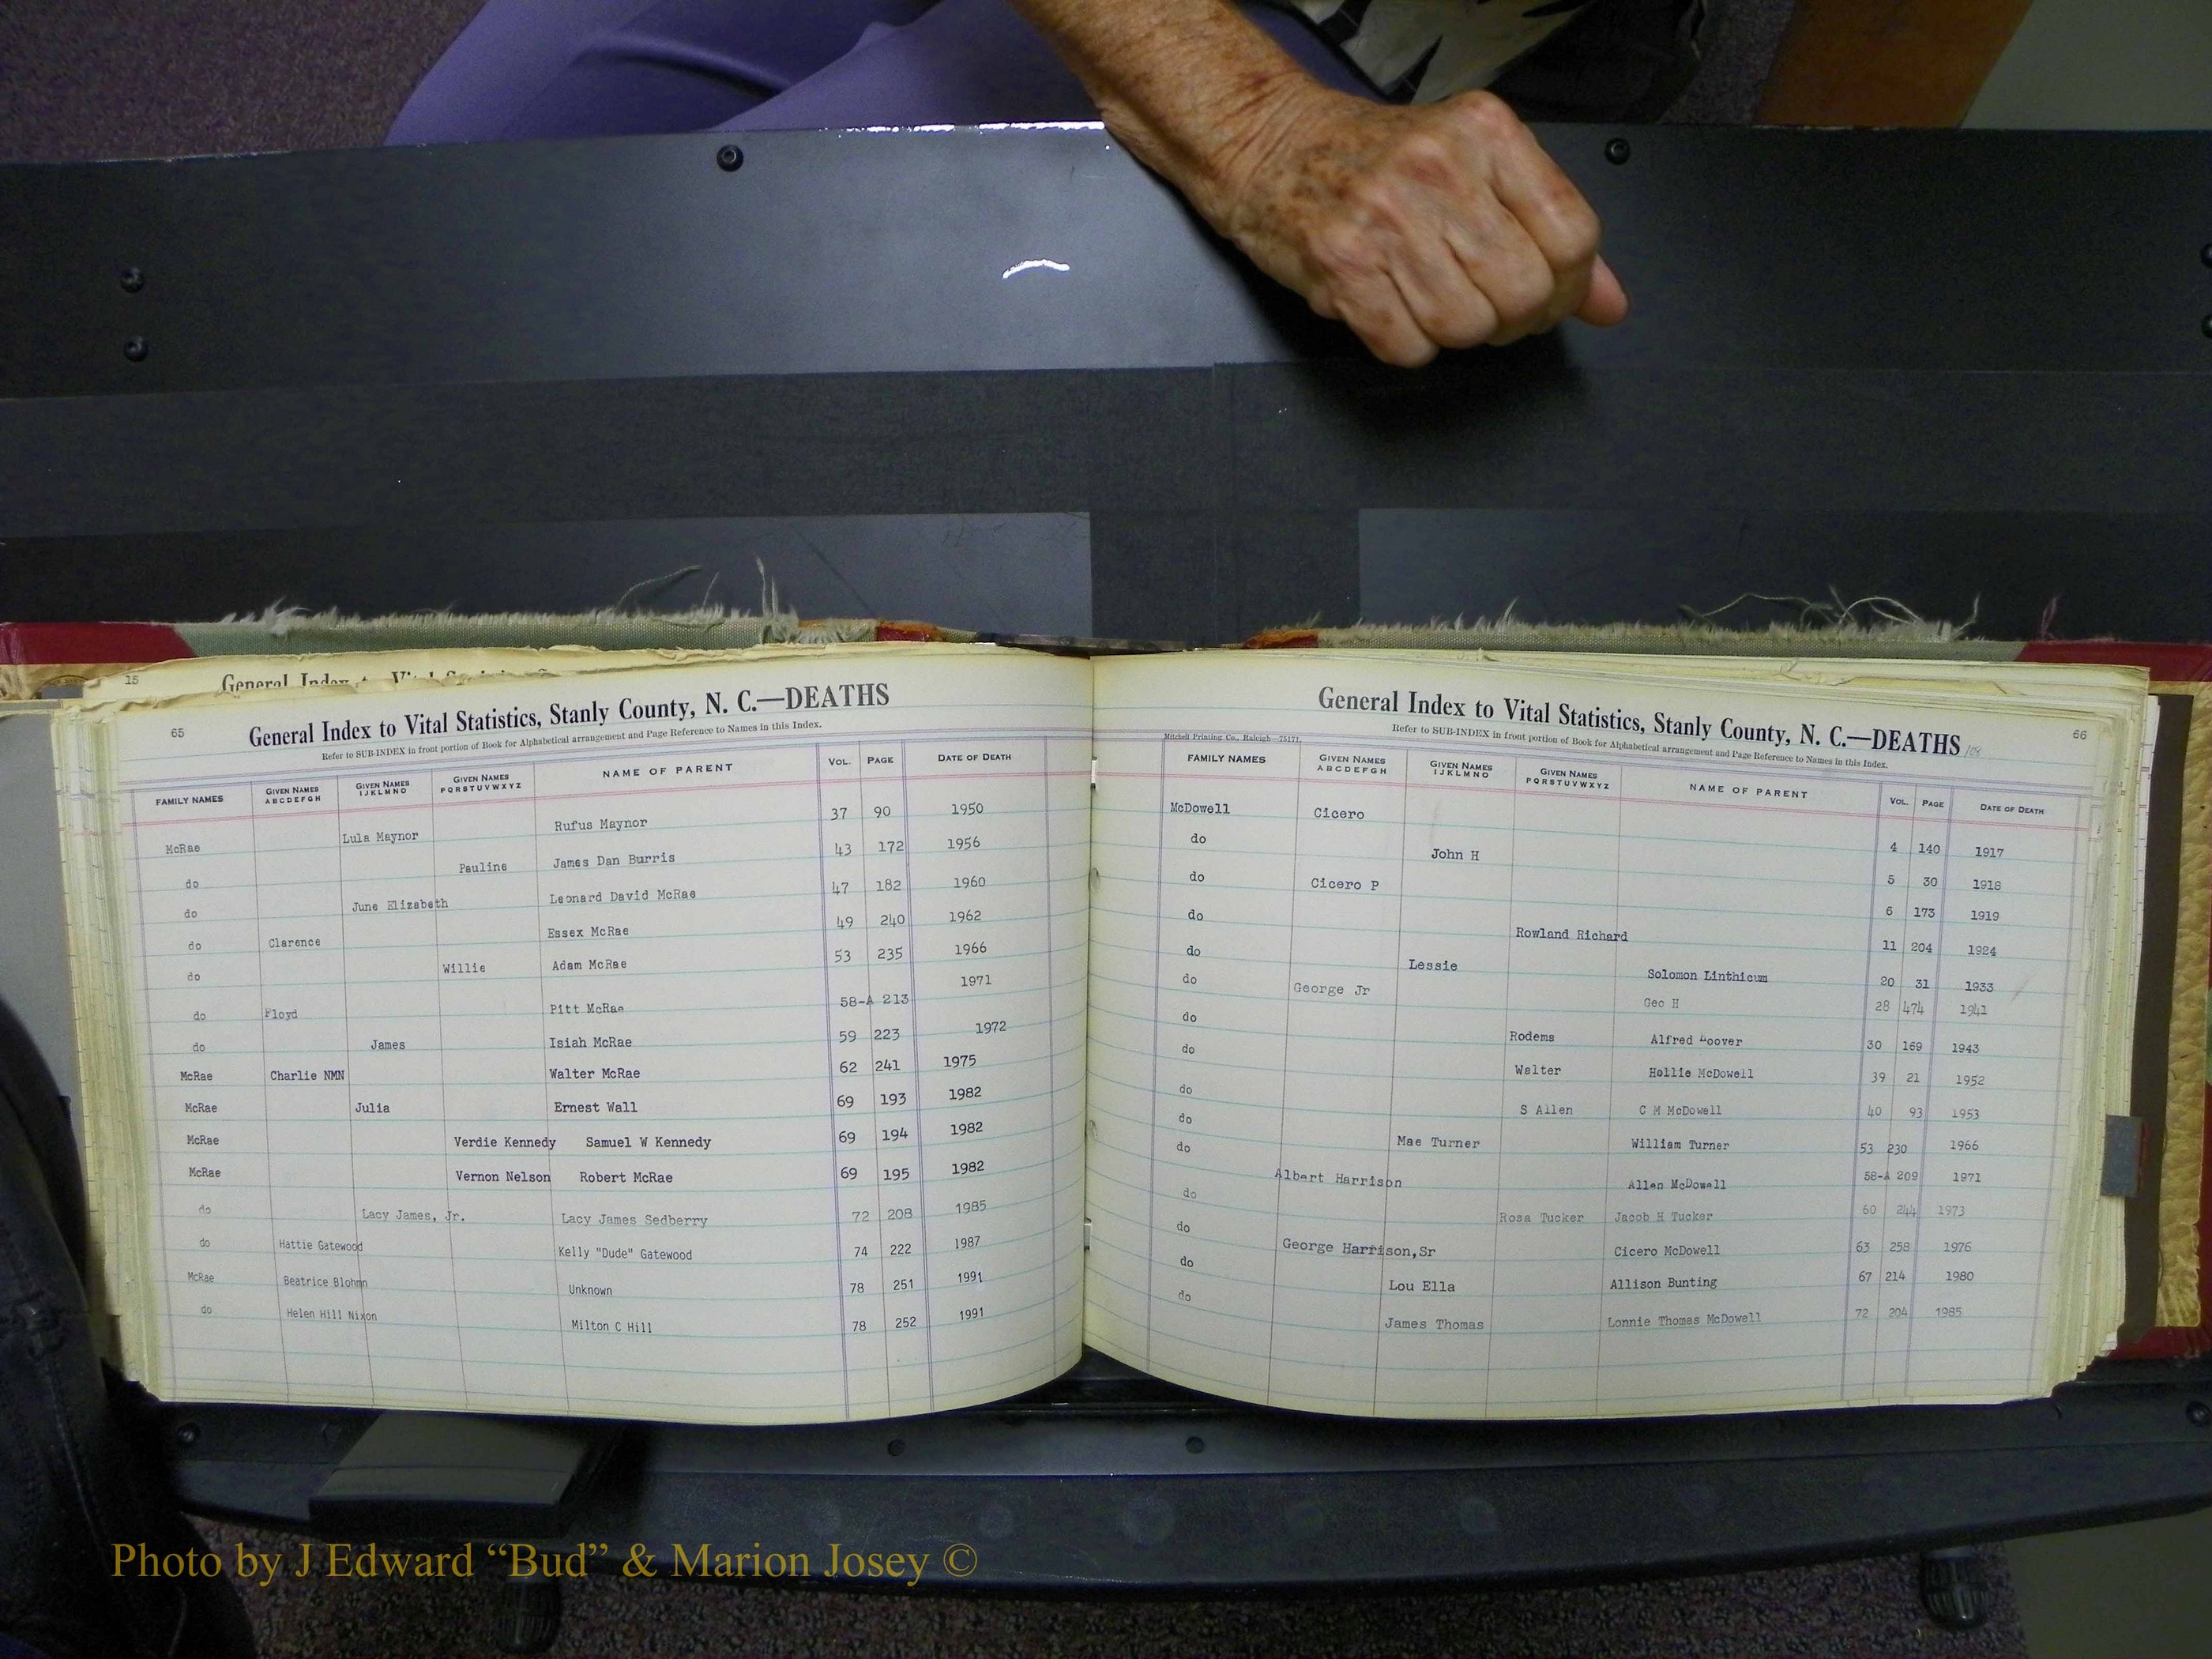 15
General Index to Vital Statistics
65
General Index to Vital Statistics, Stanly County, N. C.—DEATHS
Refer to SUB-INDEX in front portion of Book for Alphabetical arrangement and Page Reference to Names in this Index.
FAMILY NAMES GIVEN NAMES ABCDEFGH GIVEN NAMES IJKLMNO GIVEN NAMES PQRSTUVWXYZ NAME OF PARENT VOL. PAGE DATE OF DEATH
McRae Lula Maynor Rufus Maynor 37 90 1950
do Pauline James Dan Burris 43 172 1956
do June Elizabeth Leonard David McRae 47 182 1960
do Clarence Essex McRae 49 240 1962
do Willie Adam McRae 53 235 1966
do Floyd Pitt McRae 58-A 213 1971
do James Isiah McRae 59 223 1972
McRae Charlie NMN Walter McRae 62 241 1975
McRae Julia Ernest Wall 69 193 1982
McRae Verdie Kennedy Samuel W Kennedy 69 194 1982
McRae Vernon Nelson Robert McRae 69 195 1982
do Lacy James, Jr. Lacy James Sedberry 72 208 1985
do Hattie Gatewood Kelly "Dude" Gatewood 74 222 1987
McRae Beatrice Blohmn Unknown 78 251 1991
do Helen Hill Nixon Milton C Hill 78 252 1991
66
General Index to Vital Statistics, Stanly County, N. C.—DEATHS
Mitchell Printing Co., Raleigh—75171.
Refer to SUB-INDEX in front portion of Book for Alphabetical arrangement and Page Reference to Names in this Index.
FAMILY NAMES GIVEN NAMES ABCDEFGH GIVEN NAMES IJKLMNO GIVEN NAMES PQRSTUVWXYZ NAME OF PARENT VOL. PAGE DATE OF DEATH
McDowell Cicero 4 140 1917
do John H 5 30 1918
do Cicero P 6 173 1919
do Rowland Richard 11 204 1924
do Lessie Solomon Linthicum 20 31 1933
do George Jr Geo H 28 474 1941
do Rodems Alfred Hoover 30 169 1943
do Walter Hollie McDowell 39 21 1952
do S Allen C M McDowell 40 93 1953
do Mae Turner William Turner 53 230 1966
do Albert Harrison Allen McDowell 58-A 209 1971
do Rosa Tucker Jacob H Tucker 60 244 1973
do George Harrison, Sr Cicero McDowell 63 258 1976
do Lou Ella Allison Bunting 67 214 1980
do James Thomas Lonnie Thomas McDowell 72 204 1985
Photo by J Edward “Bud” & Marion Josey ©